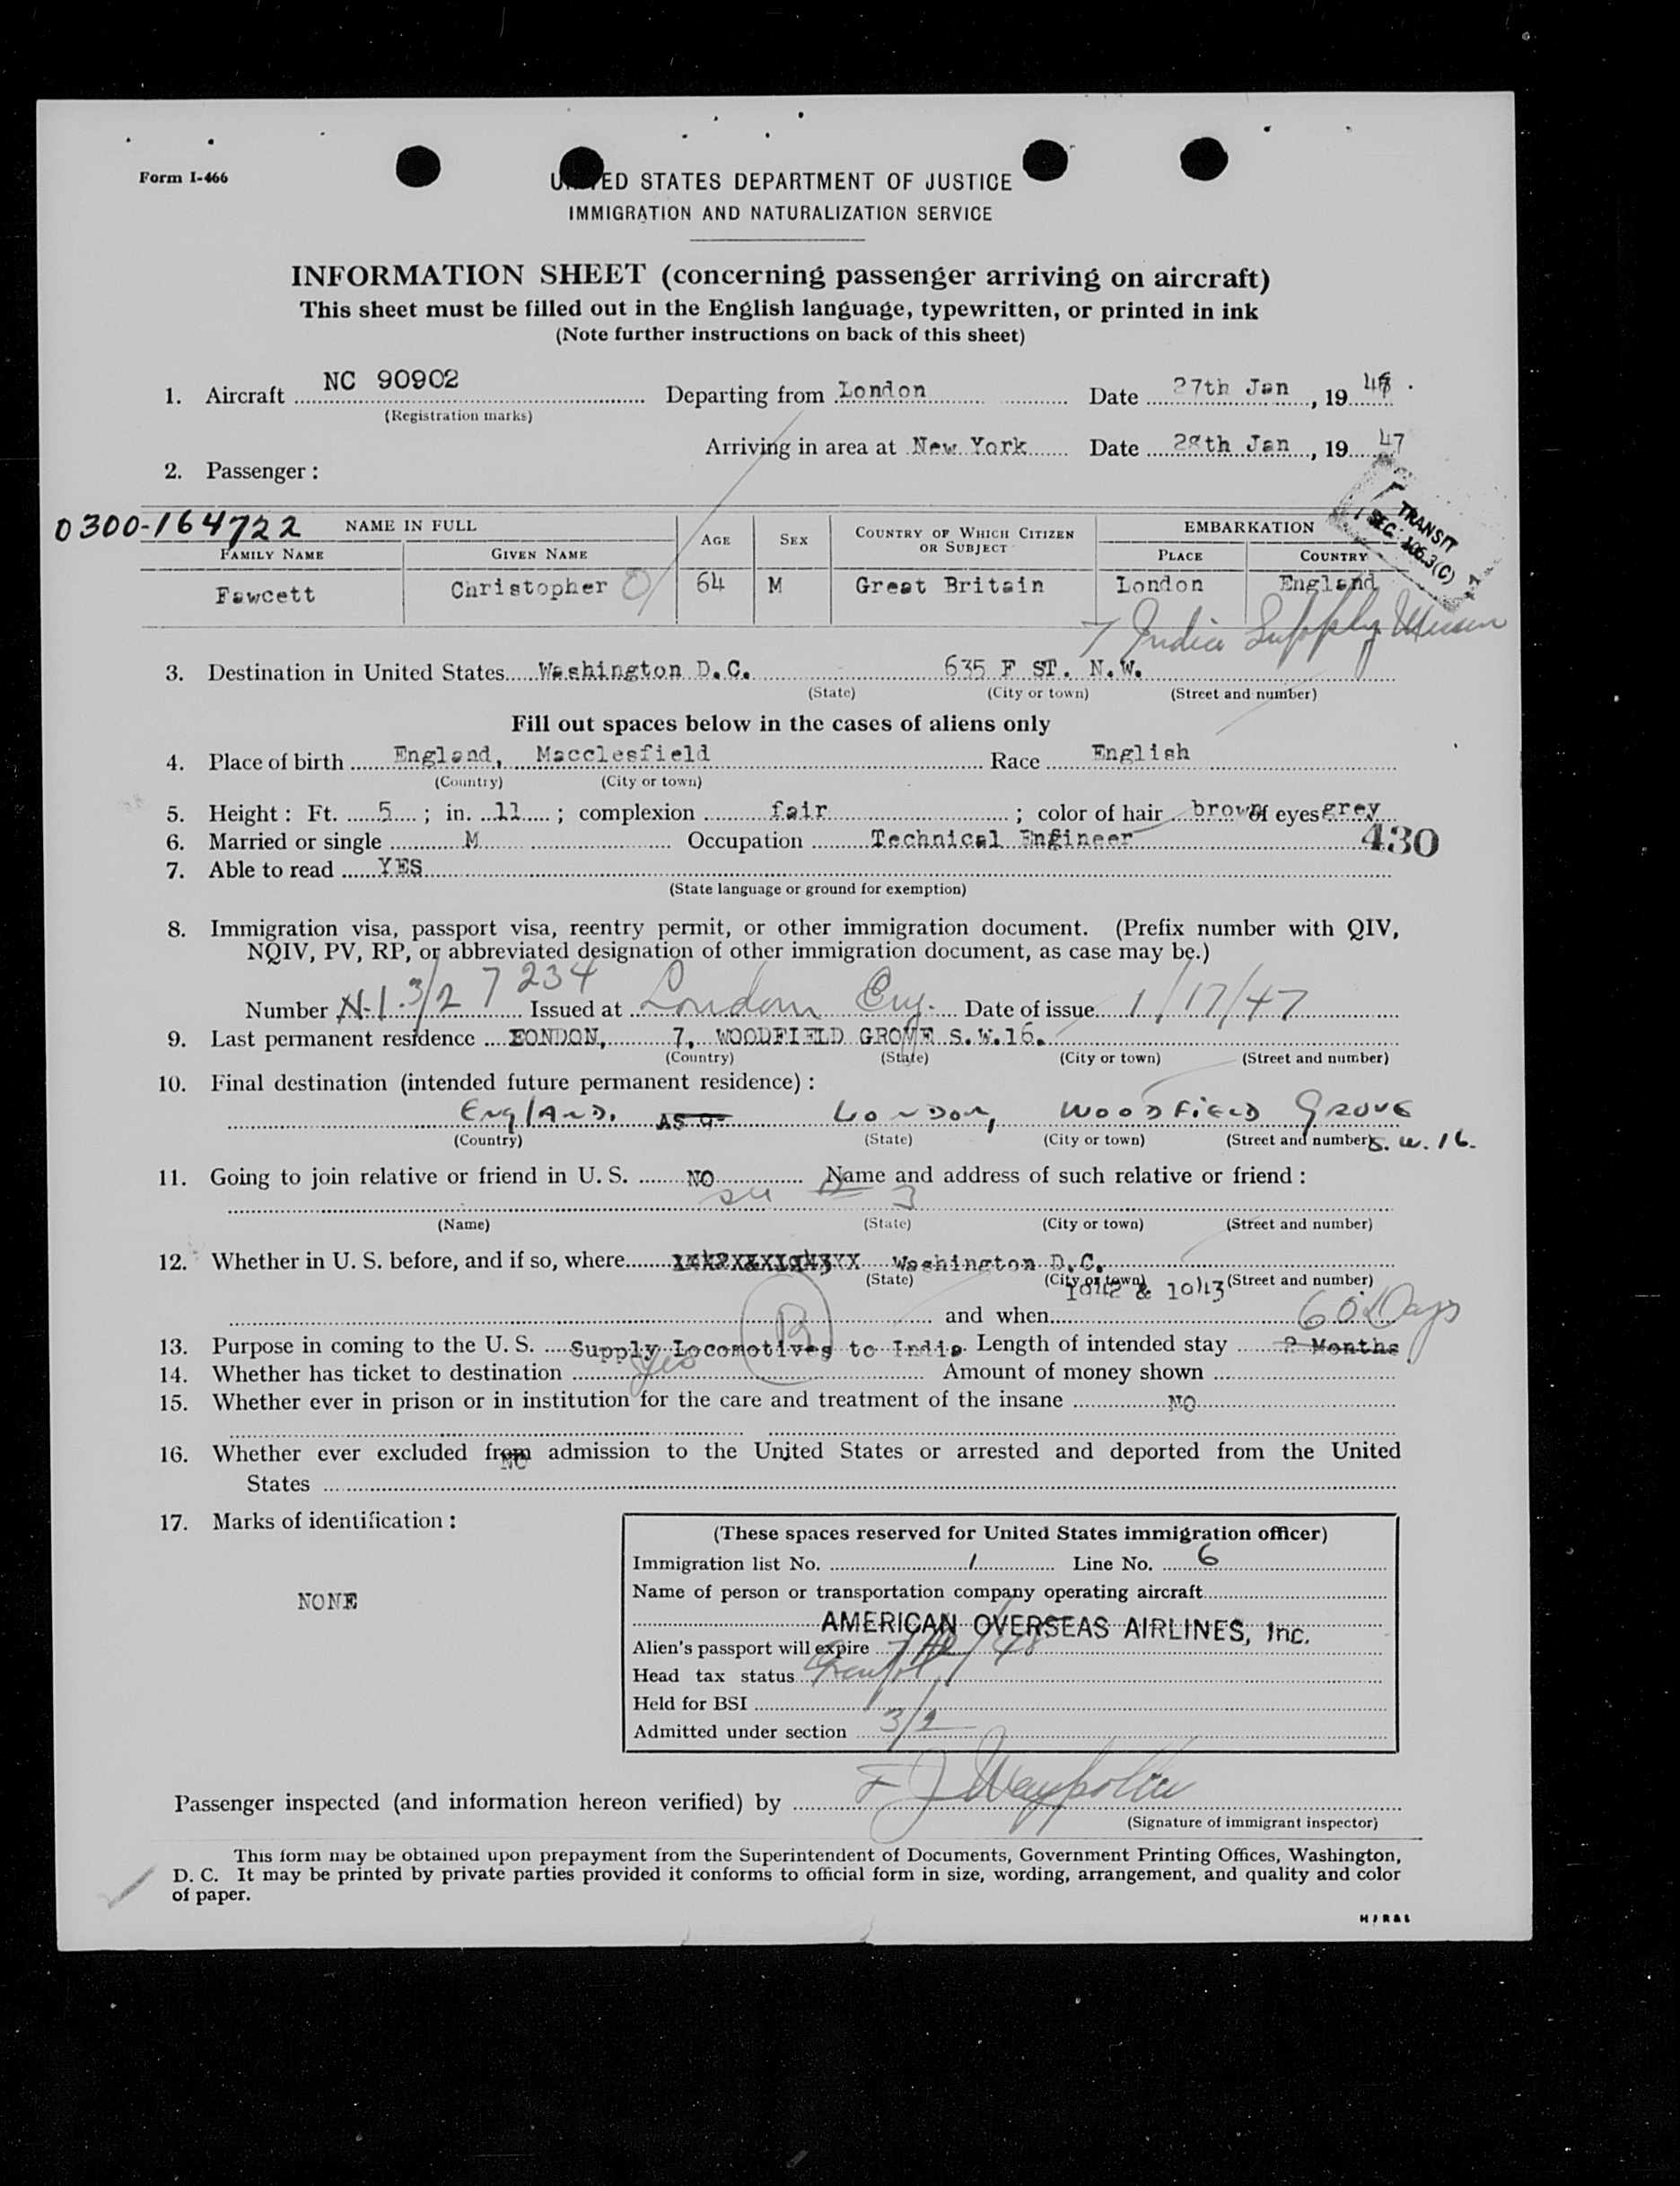 Form I-466
UNITED STATES DEPARTMENT OF JUSTICE
IMMIGRATION AND NATURALIZATION SERVICE
INFORMATION SHEET (concerning passenger arriving on aircraft)
This sheet must be filled out in the English language, typewritten, or printed in ink
(Note further instructions on back of this sheet)
1. Aircraft NC 90902 Departing from London Date 27th Jan, 19
(Registration marks)
Arriving in area at New York Date 28th Jan, 19 47
2. Passenger:
TRANSIT
SEC. 106.3(C)
0300-164722 NAME IN FULL AGE SEX COUNTRY OF WHICH CITIZEN OR SUBJECT EMBARKATION
FAMILY NAME GIVEN NAME PLACE COUNTRY
Fawcett Christopher 64 M Great Britain London England
% India Supply Mission
3. Destination in United States Washington D.C. 635 F ST. N.W.
(State) (City or town) (Street and number)
Fill out spaces below in the cases of aliens only
4. Place of birth England, Macclesfield Race English
(Country) (City or town)
5. Height: Ft. 5; in. 11; complexion fair; color of hair brown of eyes grey
6. Married or single M Occupation Technical Engineer 430
7. Able to read YES
(State language or ground for exemption)
8. Immigration visa, passport visa, reentry permit, or other immigration document. (Prefix number with QIV,
NQIV, PV, RP, or abbreviated designation of other immigration document, as case may be.)
Number 3/2 7234 Issued at London Eng. Date of issue 1/17/47
9. Last permanent residence LONDON, 7, WOODFIELD GROVE S.W.16.
(Country) (State) (City or town) (Street and number)
10. Final destination (intended future permanent residence):
ENGLAND. AS 9 LONDON, WOODFIELD GROVE
(Country) (State) (City or town) (Street and number) S.W.16.
11. Going to join relative or friend in U. S. NO Name and address of such relative or friend:
(Name) (State) (City or town) (Street and number)
12. Whether in U. S. before, and if so, where Washington D.C.
(State) (City or town) (Street and number)
1942 & 1943
and when 60 Days
13. Purpose in coming to the U. S. Supply Locomotives to India. Length of intended stay 2 Months
14. Whether has ticket to destination yes Amount of money shown
15. Whether ever in prison or in institution for the care and treatment of the insane NO
16. Whether ever excluded from admission to the United States or arrested and deported from the United
NO
States
17. Marks of identification:
NONE
(These spaces reserved for United States immigration officer)
Immigration list No. 1 Line No. 6
Name of person or transportation company operating aircraft
AMERICAN OVERSEAS AIRLINES, Inc.
Alien's passport will expire
Head tax status
Held for BSI
Admitted under section 3/2
Passenger inspected (and information hereon verified) by
(Signature of immigrant inspector)
This form may be obtained upon prepayment from the Superintendent of Documents, Government Printing Offices, Washington,
D. C. It may be printed by private parties provided it conforms to official form in size, wording, arrangement, and quality and color
of paper.